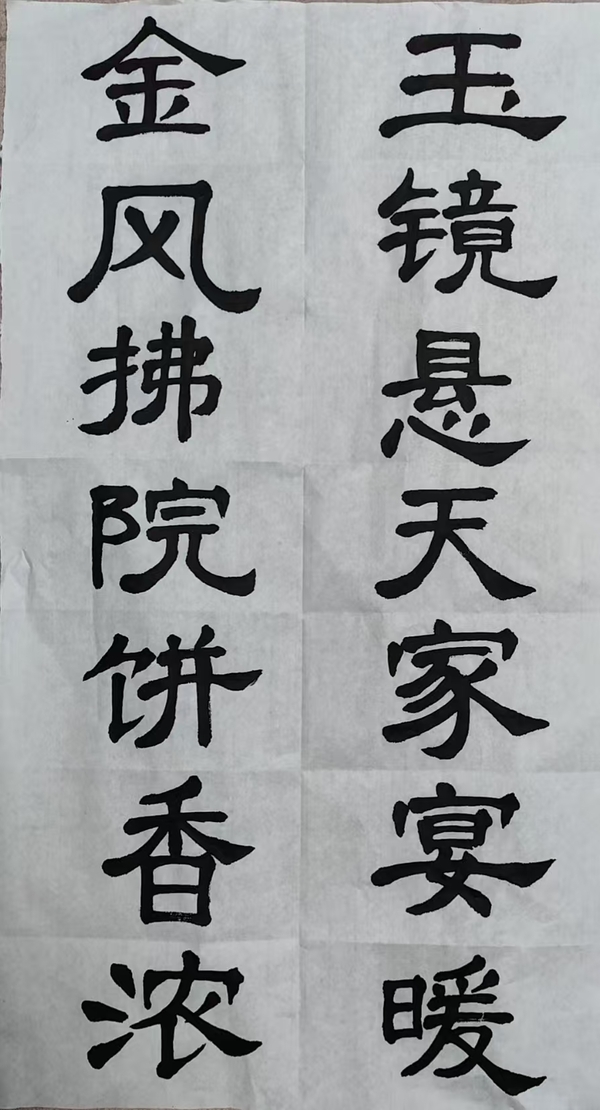 玉镜悬天家宴暖
金风拂院饼香浓